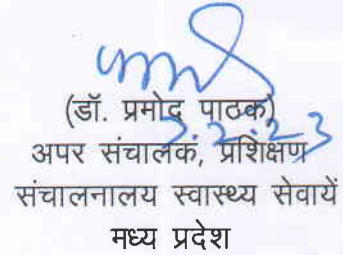 (डॉ. प्रमोद पाठक)
अपर संचालक, प्रशिक्षण
संचालनालय स्वास्थ्य सेवायें
मध्य प्रदेश